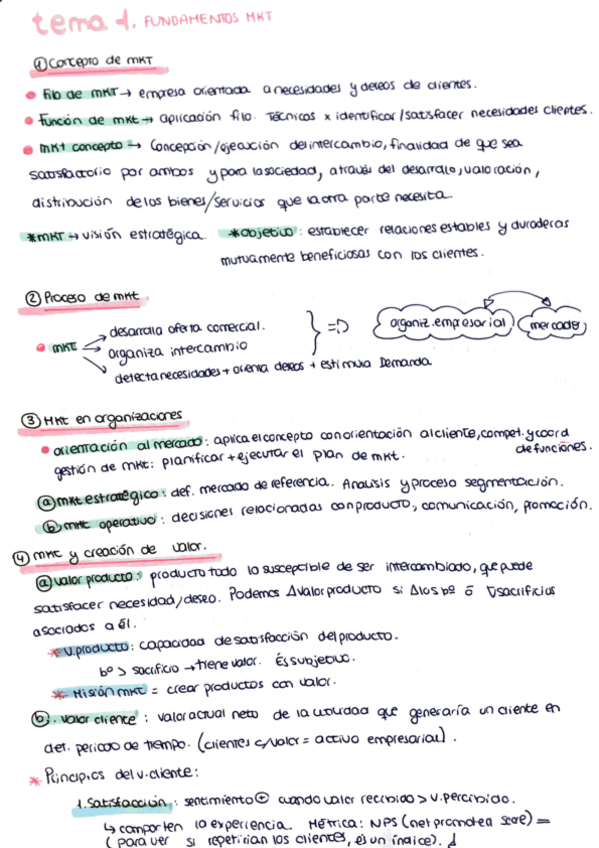 tema 1. FUNDAMENTOS MKT
① Concepto de MKT
• Filo de MKT → empresa orientada a necesidades y deseos de clientes.
• Función de mkt → aplicación filo. Técnicas x identificar/satisfacer necesidades clientes.
• MKT concepto → Concepción/ejecución del intercambio, finalidad de que sea
satisfactorio por ambos y para la sociedad, a través del desarrollo, valoración,
distribución de los bienes/servicios que la otra parte necesita.
*MKT → visión estratégica. *objetivo: establecer relaciones estables y duraderas
mutuamente beneficiosas con los clientes.
② Proceso de mkt.
• MKT → desarrolla oferta comercial.
→ organiza intercambio
→ detecta necesidades + orienta deseos + estimula Demanda
} => organiz. empresarial mercado
③ MKT en organizaciones
• orientación al mercado: aplica el concepto con orientación al cliente, compet. y coord
de funciones.
gestión de mkt: planificar + ejecutar el plan de mkt.
ⓐ mkt estratégico: def. mercado de referencia. Análisis y proceso segmentación.
ⓑ mkt operativo: decisiones relacionadas con producto, comunicación, promoción.
④ mkt y creación de valor.
ⓐ valor producto: producto todo lo susceptible de ser intercambiado, que puede
satisfacer necesidad/deseo. Podemos Δ valor producto si Δ los bº ó ∇ sacrificios
asociados a él.
* V. producto: capacidad de satisfacción del producto.
bº > sacrificio → tiene valor. Es subjetivo.
* Misión MKT = crear productos con valor.
ⓑ. valor cliente: valor actual neto de la utilidad que generaría un cliente en
det. periodo de tiempo. (clientes c/valor = activo empresarial).
* Principios del v. cliente:
1. Satisfacción: sentimiento ⊕ cuando valor recibido > v. percibido.
↳ comparten la experiencia. Métrica: NPS (net promotea score) =
(para ver si repetirían los clientes, es un índice).